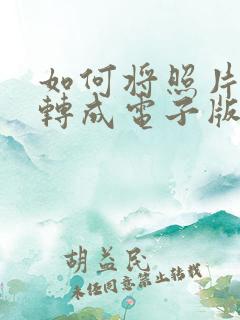 如何将照片
轉成電子版
胡益民
未经同意禁止转载